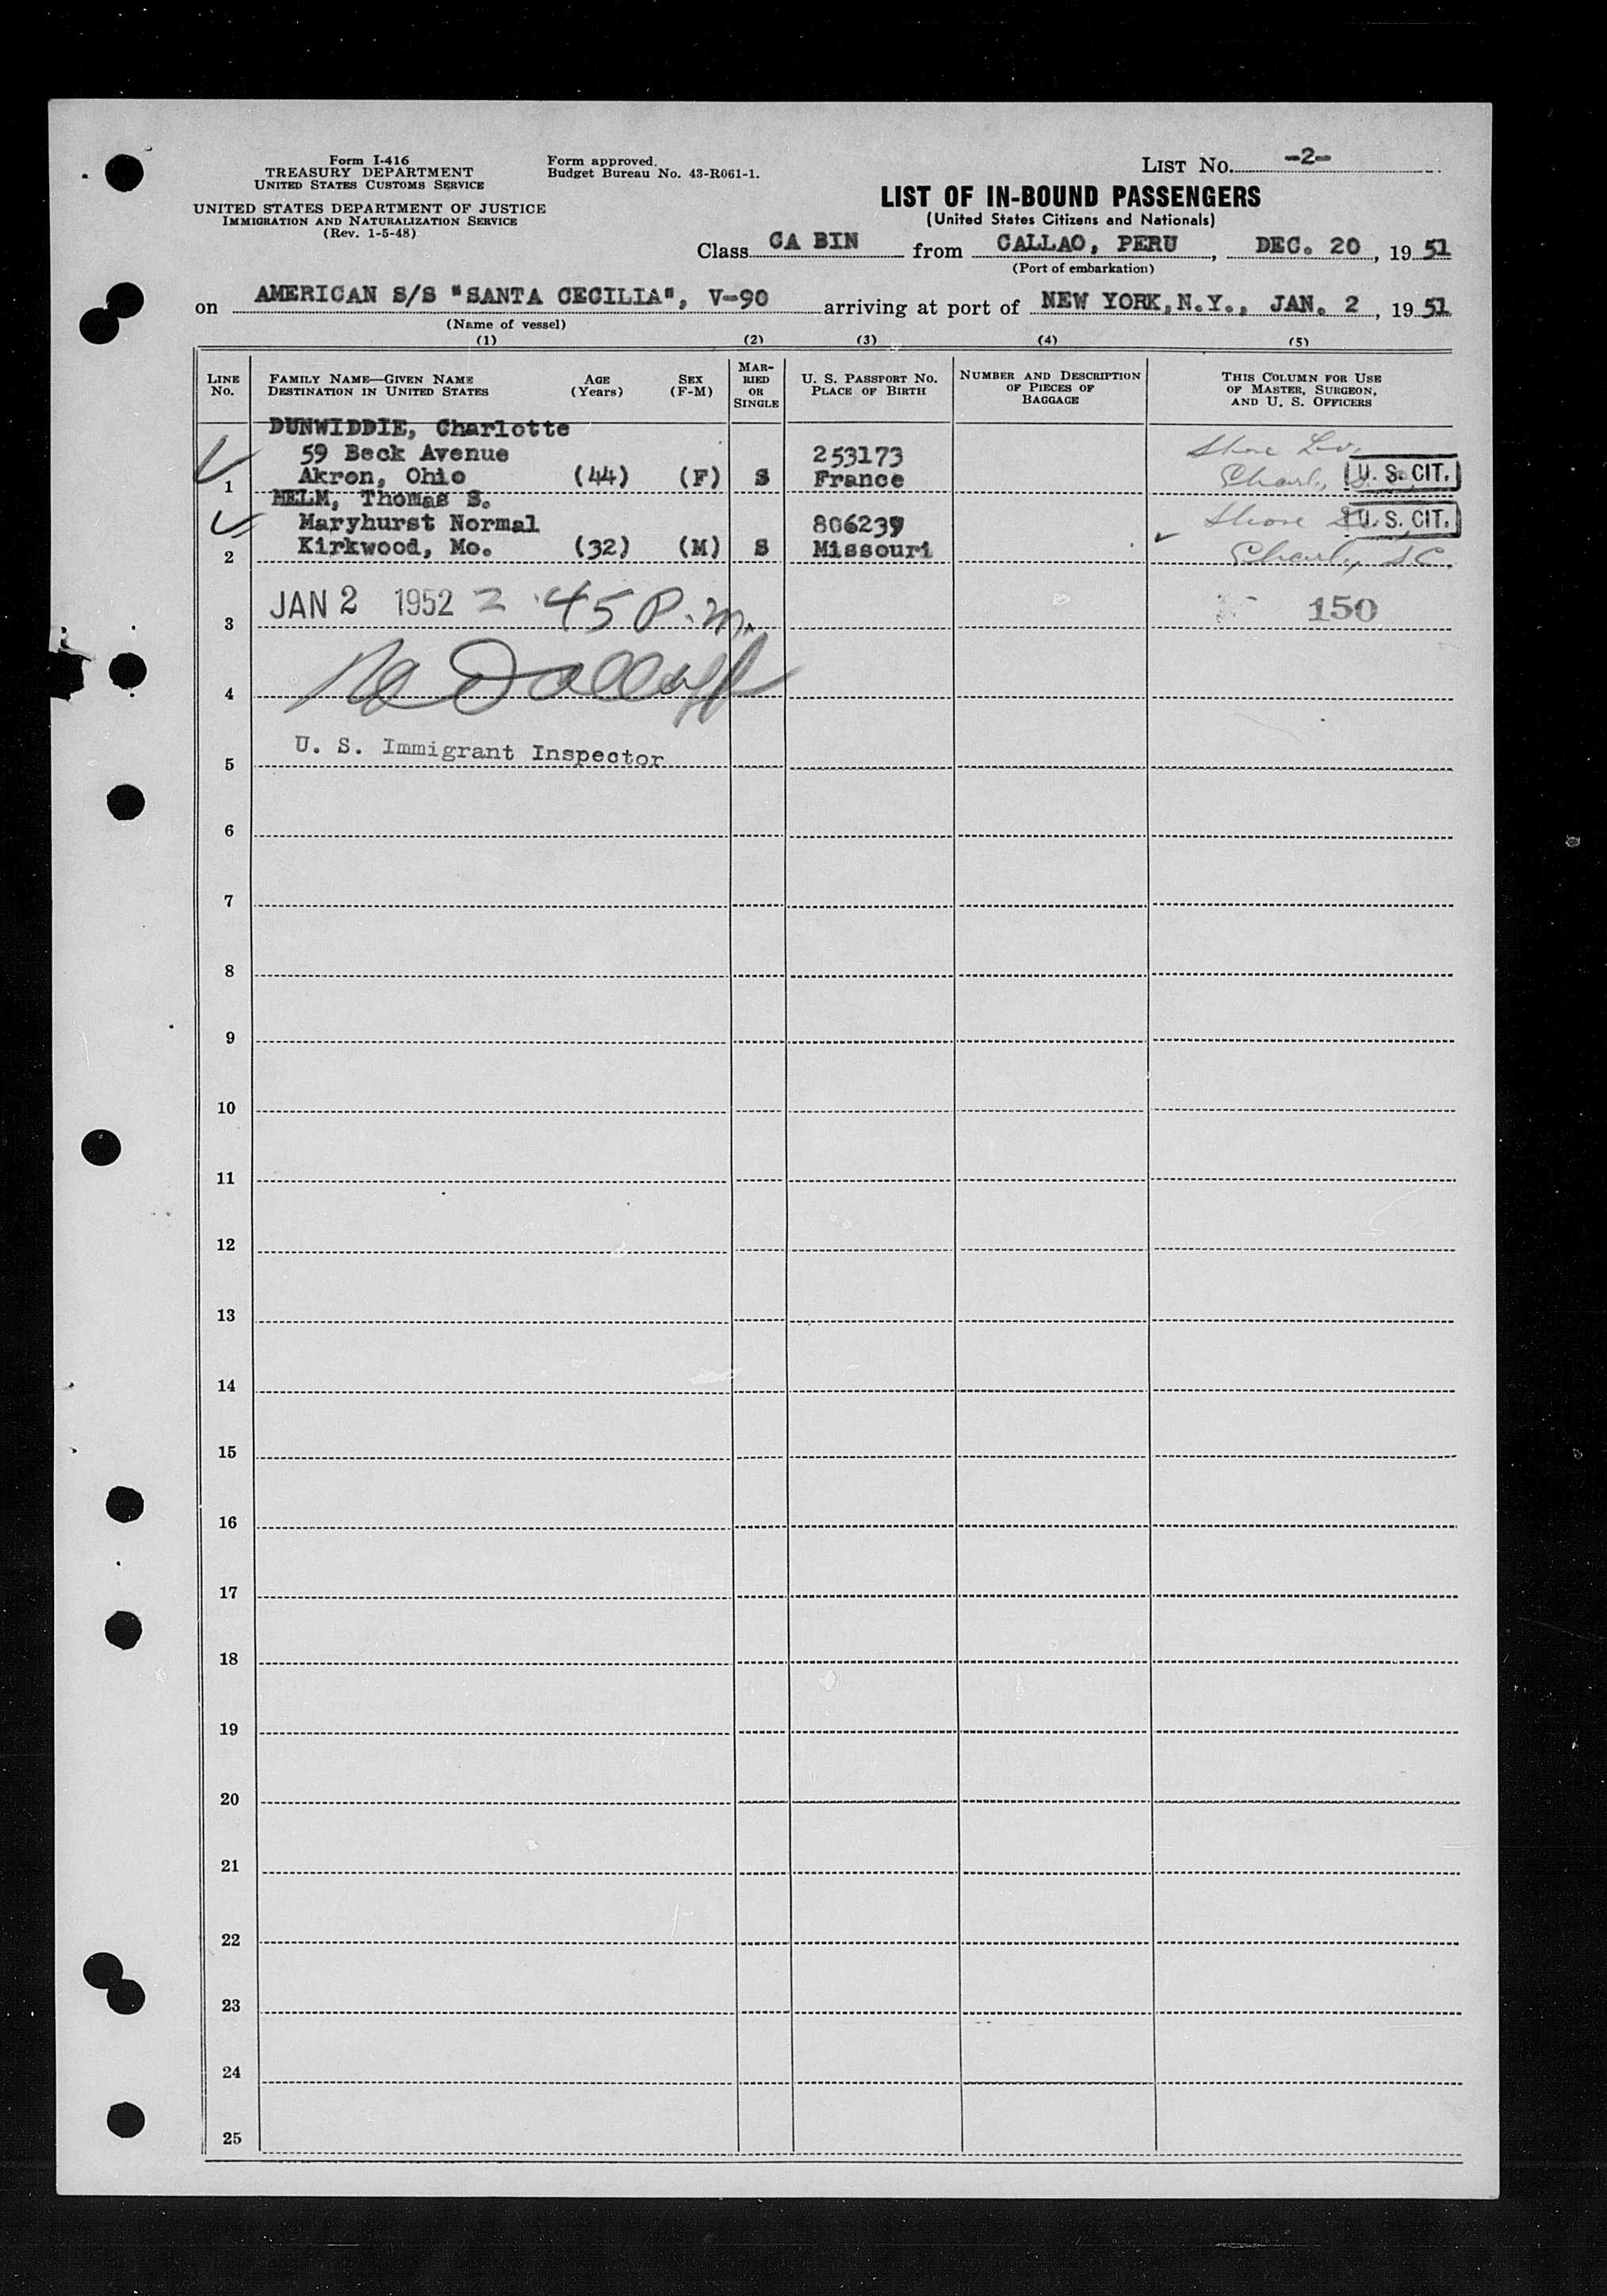 Form I-416
TREASURY DEPARTMENT
UNITED STATES CUSTOMS SERVICE
UNITED STATES DEPARTMENT OF JUSTICE
IMMIGRATION AND NATURALIZATION SERVICE
(Rev. 1-5-48)
Form approved.
Budget Bureau No. 43-R061-1.
LIST No. -2-
LIST OF IN-BOUND PASSENGERS
(United States Citizens and Nationals)
Class CA BIN from CALLAO, PERU, DEC. 20, 1951
(Port of embarkation)
on AMERICAN S/S "SANTA CECILIA", V-90 arriving at port of NEW YORK,N.Y., JAN. 2, 1951
(Name of vessel)
(1) (2) (3) (4) (5)
LINE No. FAMILY NAME—GIVEN NAME DESTINATION IN UNITED STATES AGE (Years) SEX (F-M) MARRIED OR SINGLE U. S. PASSPORT No. PLACE OF BIRTH NUMBER AND DESCRIPTION OF PIECES OF BAGGAGE THIS COLUMN FOR USE OF MASTER, SURGEON, AND U. S. OFFICERS
DUNWIDDIE, Charlotte
59 Beck Avenue 253173 Shore
1 Akron, Ohio (44) (F) S France Charl, U. S. CIT.
HELM, Thomas S.
Maryhurst Normal 806239 Shore U. S. CIT.
2 Kirkwood, Mo. (32) (M) S Missouri Charl, SC.
3 JAN 2 1952 2:45 P.m. 150
4
5 U. S. Immigrant Inspector
6
7
8
9
10
11
12
13
14
15
16
17
18
19
20
21
22
23
24
25